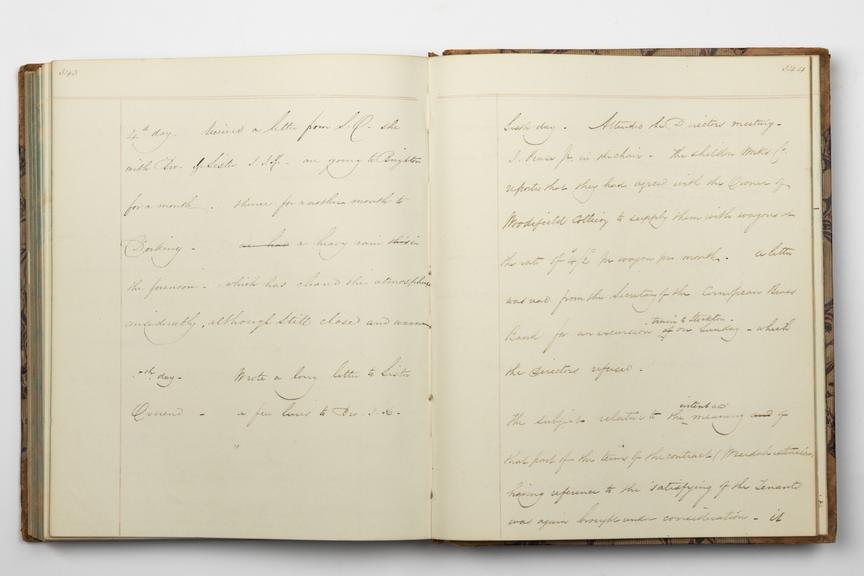 343
4th day. Received a letter from S.C. she
with Bro. & Sister I.I.G. are going to Brighton
for a month. thence for another month to
Dorking. a heavy rain this in
the forenoon - which has cleared the atmosphere
considerably, although still close and warm
5th day - Wrote a long letter to Sister
a few lines to Bro.
344
Sixth day. Attended the Directors meeting.
I. Pease Jr in the chair. The Shildon Works Co.
reported that they had agreed with the Owner of
Woodifield Colliery to supply them with wagons at
the rate of pr wagon per month. a letter
was read from the Secretary of the Cornopean Brass
train to Stockton
Band for an excursion of on Sunday - which
the Directors refused.
intent and
The subject relative to the meaning and of
that part of the terms of the contract (Weardale extension)
having reference to the satisfying of the Tenants
was again brought under consideration - it